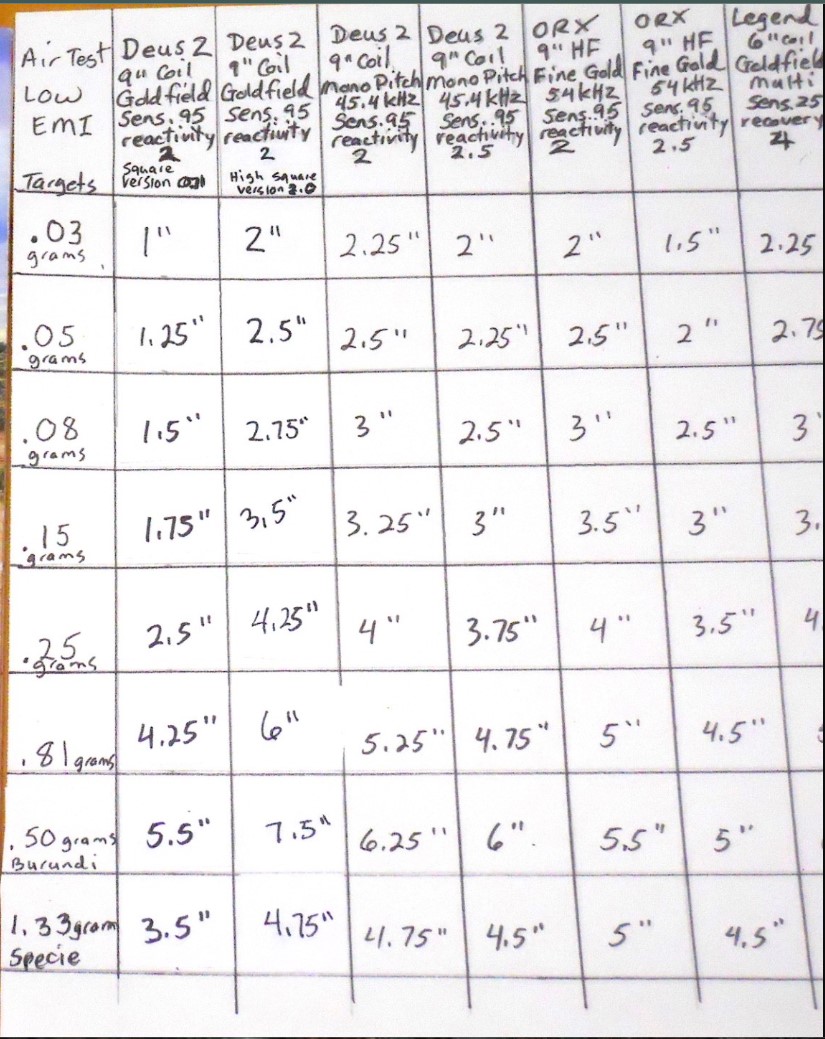 Air Test
Low
EMI
Targets
Deus 2
9" Coil
Goldfield
Sens. 95
reactivity
2
Square
version
Deus 2
9" Coil
Goldfield
Sens. 95
reactivity
2
High Square
version 2.0
Deus 2
9" Coil
Mono Pitch
45.4 kHz
Sens. 95
reactivity
2
Deus 2
9" Coil
Mono Pitch
45.4 kHz
Sens. 95
reactivity
2.5
ORX
9" HF
Fine Gold
54 kHz
Sens. 95
reactivity
2
ORX
9" HF
Fine Gold
54 kHz
Sens. 95
reactivity
2.5
Legend
6" coil
Goldfield
multi
Sens. 25
recovery
4
.03 grams 1" 2" 2.25" 2" 2" 1.5" 2.25
.05 grams 1.25" 2.5" 2.5" 2.25" 2.5" 2" 2.75
.08 grams 1.5" 2.75" 3" 2.5" 3" 2.5" 3"
.15 grams 1.75" 3.5" 3.25" 3" 3.5" 3" 3.
.25 grams 2.5" 4.25" 4" 3.75" 4" 3.5" 4
.81 grams 4.25" 6" 5.25" 4.75" 5" 4.5"
.50 grams Burundi 5.5" 7.5" 6.25" 6" 5.5" 5"
1.33 gram Specie 3.5" 4.75" 4.75" 4.5" 5" 4.5"